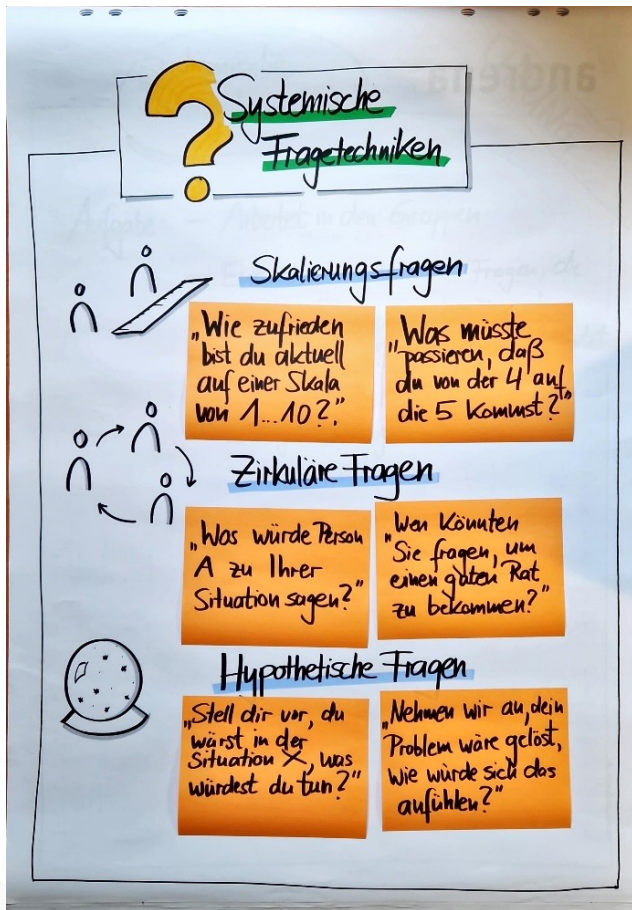 Systemische
Fragetechniken
Skalierungsfragen
„Wie zufrieden
bist du aktuell
auf einer Skala
von 1...10?"
„Was müsste
passieren, daß
du von der 4 auf
die 5 kommst?"
Zirkuläre Fragen
„Was würde Person
A zu Ihrer
Situation sagen?"
„Wen könnten
Sie fragen, um
einen guten Rat
zu bekommen?"
Hypothetische Fragen
„Stell dir vor, du
wärst in der
Situation X, was
würdest du tun?"
„Nehmen wir an, dein
Problem wäre gelöst,
wie würde sich das
anfühlen?"
andrena
Aufgabe - Arbeitet in den Gruppen
Fragen, die